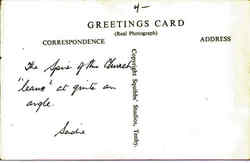 4-
GREETINGS CARD
(Real Photograph)
CORRESPONDENCE ADDRESS
The Spire of the Church
"leans" at quite an
angle.
Sadie
Copyright Squibbs' Studios, Tenby.